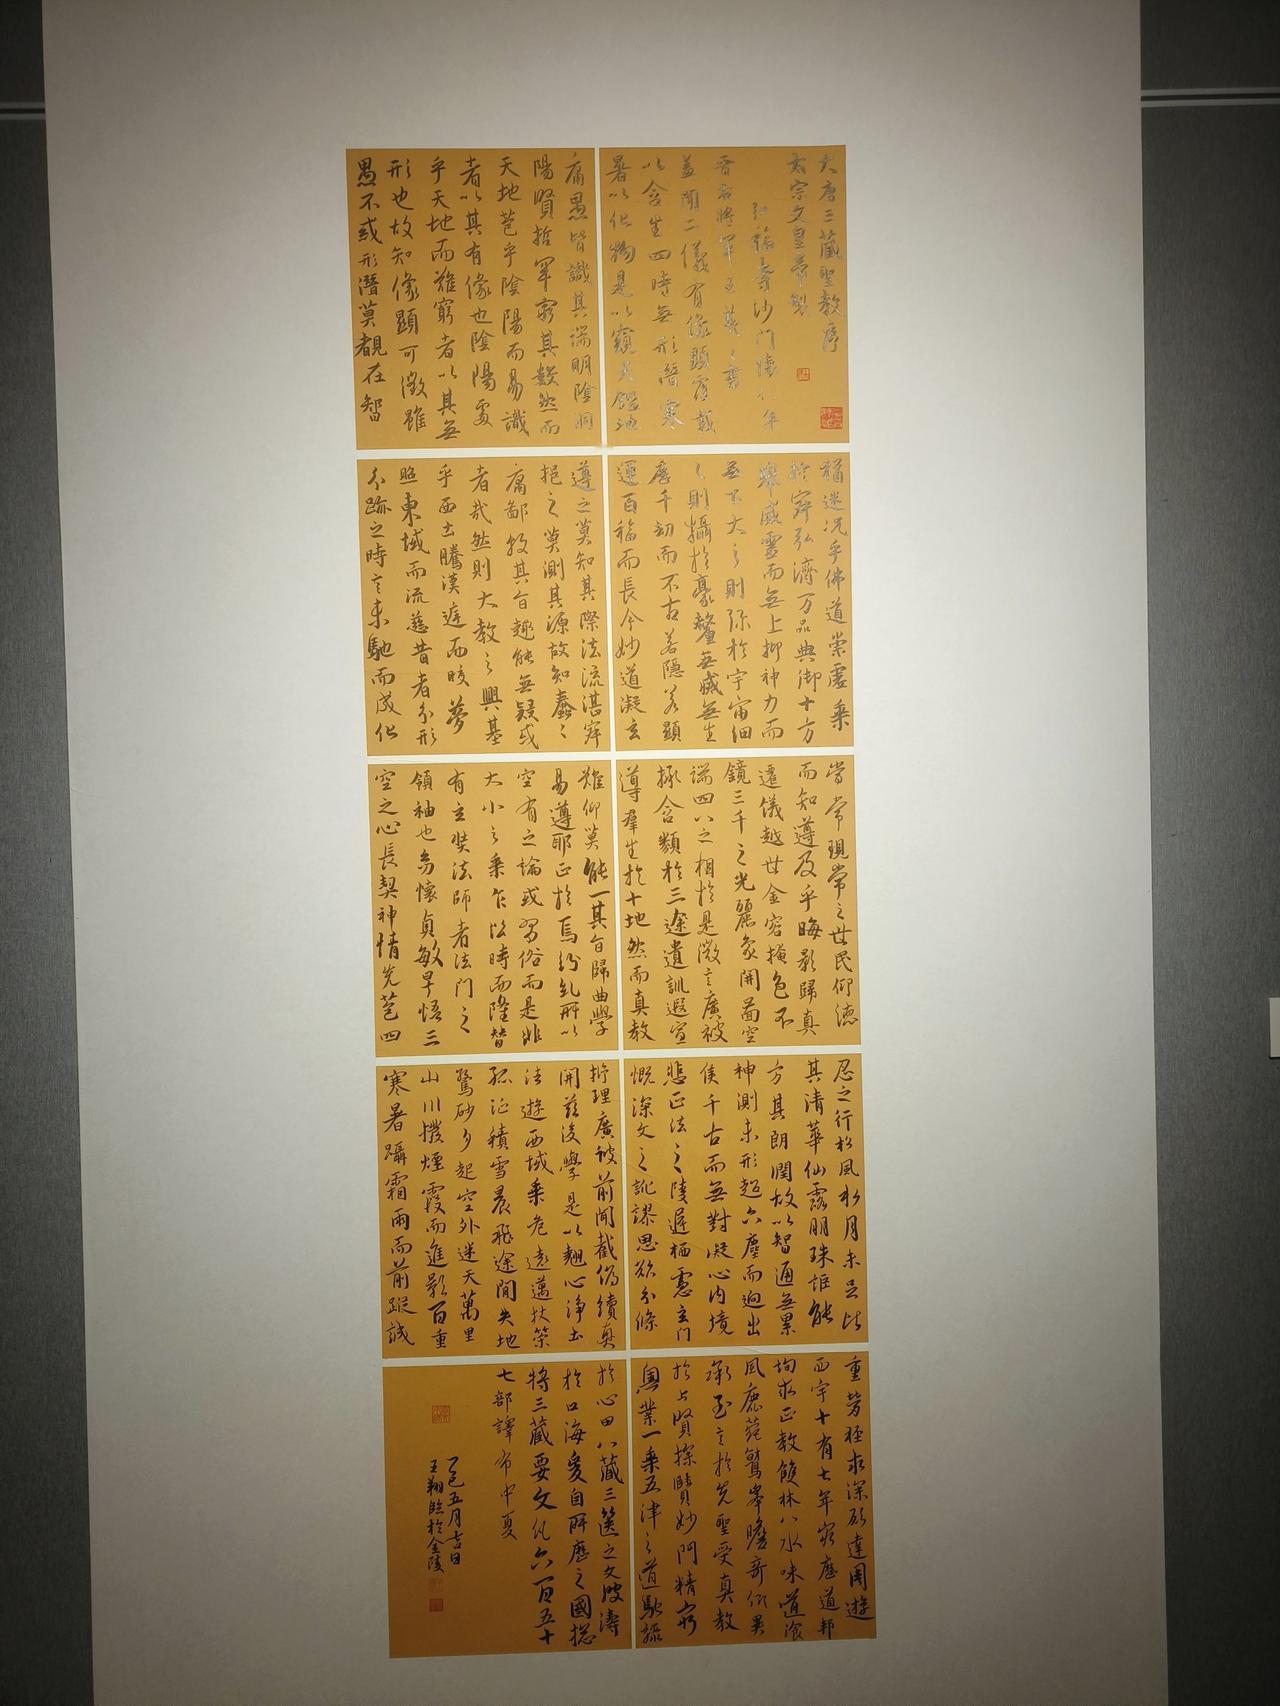 大唐三藏聖教序
太宗文皇帝製
弘福寺沙門懷仁集
晉右將軍王羲之書
蓋聞二儀有像顯覆載
以含生四時無形潛寒
暑以化物是以窺天鑑地
庸愚皆識其端明陰洞
陽賢哲罕窮其數然而
天地苞乎陰陽而易識
者以其有像也陰陽處
乎天地而難窮者以其無
形也故知像顯可徵雖
愚不惑形潛莫覩在智
猶迷況乎佛道崇虛乘
於寂弘濟万品典御十方
舉威靈而無上抑神力而
無下大之則弥於宇宙細
之則攝於豪釐無滅無生
歷千劫而不古若隱若顯
運百福而長今妙道凝玄
遵之莫知其際法流湛寂
挹之莫測其源故知蠢々
庸鄙投其旨趣能無疑或
者哉然則大教之興基
乎西土騰漢庭而皎夢
照東域而流慈昔者分形
分跡之時言未馳而成化
當常現常之世民仰德
而知遵及乎晦影歸真
遷儀越世金容掩色不
鏡三千之光麗象開圖空
端四八之相於是微言廣被
拯含類於三途遺訓遐宣
導群生於十地然而真教
難仰莫能一其旨歸曲學
易遵耶正於焉紛糺所以
空有之論或習俗而是非
大小之乘乍沿時而隆替
有玄奘法師者法門之
領袖也幼懷貞敏早悟三
空之心長契神情先苞四
忍之行松風水月未足比
其清華仙露明珠詎能
方其朗潤故以智通無累
神測未形超六塵而迥出
侯千古而無對凝心內境
悲正法之陵遲栖慮玄門
慨深文之訛謬思欲分條
析理廣彼前聞截偽續真
開茲後學是以翹心淨土
法遊西域乘危遠邁杖策
孤征積雪晨飛途閒失地
驚砂夕起空外迷天萬里
山川撥煙霞而進影百重
寒暑躡霜雨而前蹤誠
重勞輕求深願達周遊
西宇十有七年窮歷道邦
詢求正教雙林八水味道飡
風鹿菀鷲峯瞻奇仰異
承至言於先聖受真教
於上賢探賾妙門精窮
奧業一乘五律之道馳驟
於心田八藏三篋之文波濤
於口海爰自所歷之國摠
將三藏要文凡六百五十
七部譯布中夏
乙巳五月吉日
王翔臨於金陵